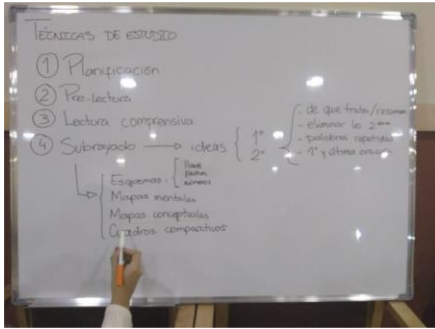 TÉCNICAS DE ESTUDIO
① Planificación
② Pre-lectura
③ Lectura comprensiva
④ Subrayado → ideas { 1º 2º
- de que trata/resumen
- eliminar lo 2ario
- palabras repetidas
- 1ª y última oración
Esquemas - [ llave flechas números
Mapas mentales
Mapas conceptuales
Cuadros comparativos